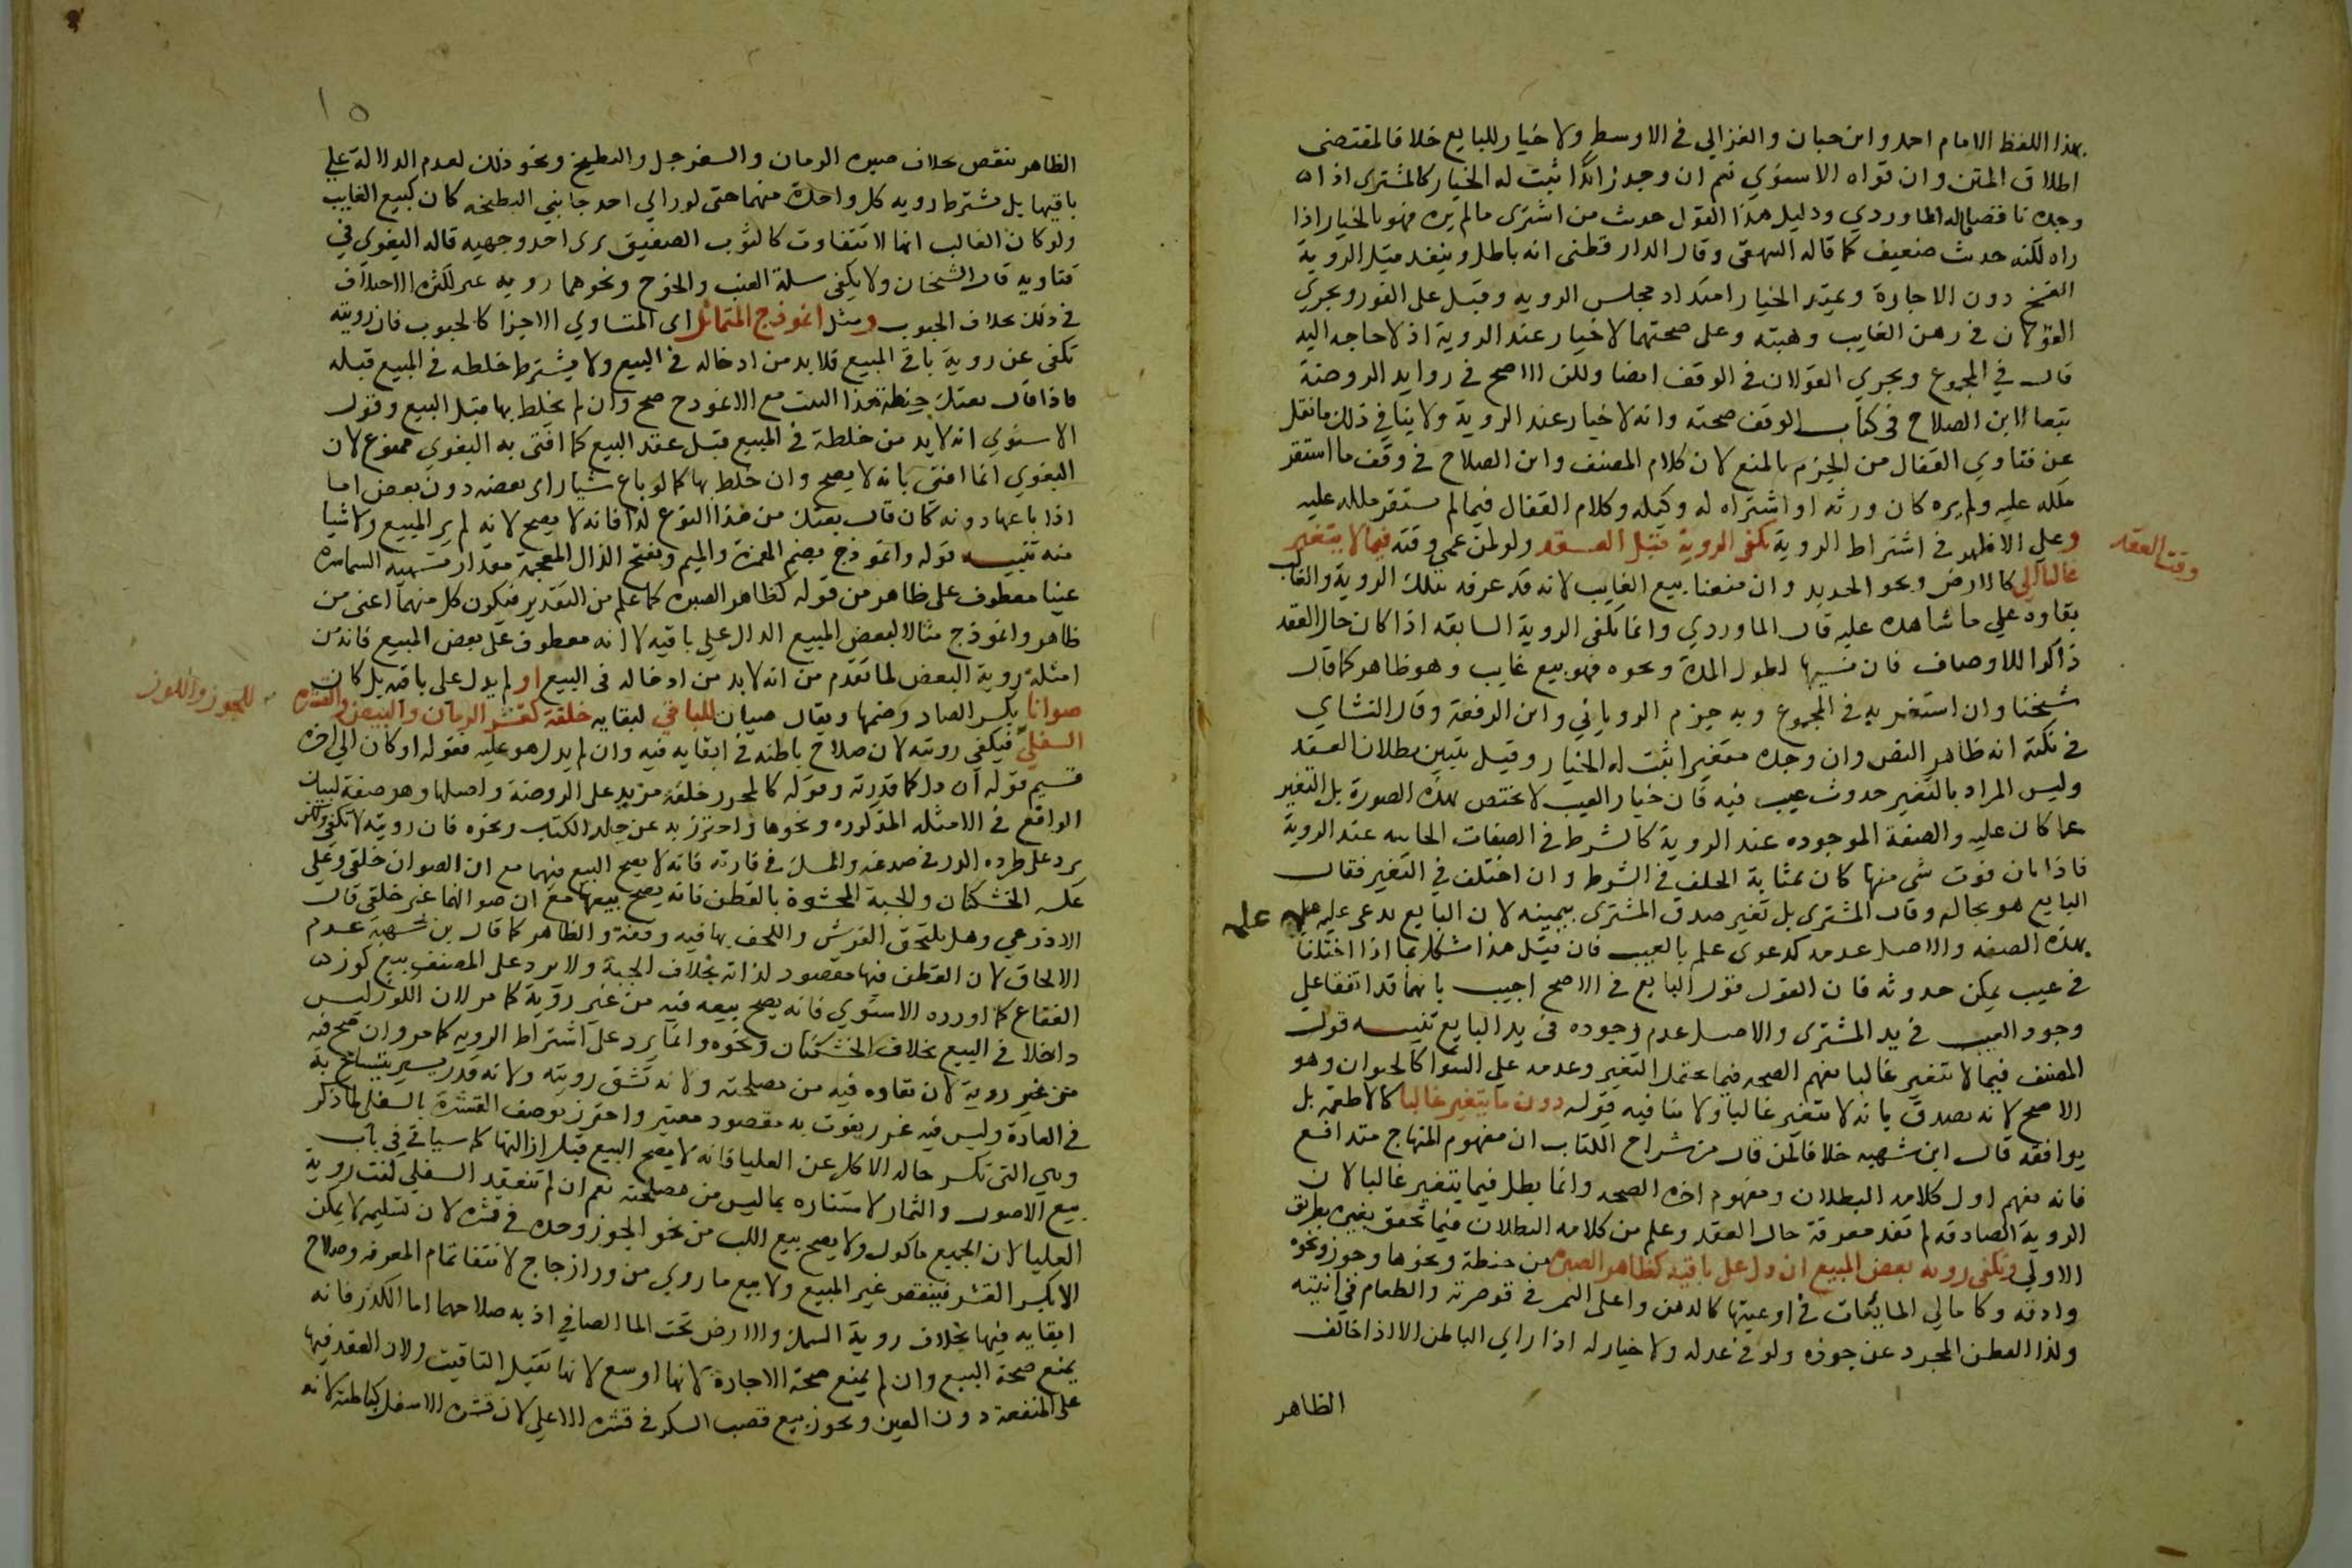 بهذا اللفظ الامام احمد وابن حبان والغزالي في الاوسط ولا خيار للبايع خلافا لمقتضى
اطلاق المتن وان قواه الاسنوي نعم ان وجد زايدا ثبت له الخيار كالمشتري اذا
وجده ناقصا قاله الماوردي ودليل هذا القول حديث من اشترى مالم يره فهو بالخيار اذا
راه لكنه حديث ضعيف كما قاله البيهقي وقال الدارقطني انه باطل وينفذ قبل الروية
الفسخ دون الاجازة ويمتد الخيار امتداد مجلس الرويه وقيل على الفور ويجري
القولان في رهن الغايب وهبته وعلى صحتهما لا خيار عند الروية اذ لا حاجه اليه
قال في المجموع ويجري القولان في الوقف ايضا ولكن الاصح في زوايد الروضة
تبعا لابن الصلاح في كتاب الوقف صحته وانه لا خيار عند الروية ولا ينافي ذلك ما نقل
عن فتاوي القفال من الجزم بالمنع لان كلام المصنف وابن الصلاح في وقف ما استقر
ملكه عليه ولم يره كان ورثه او اشتراه له وكيله وكلام القفال فيما لم يستقر ملكه عليه
وعلى الاظهر في اشتراط الروية تكفي الروية قبل العقد ولو لمن عمي وقته فيما لا يتغير
وقت العقد
غالبا الى كالارض ونحو الحديد وان منعنا بيع الغايب لانه قد عرفه بتلك الروية والغالب
بقاوه على ما شاهده عليه قال الماوردي وانما تكفي الروية السابقه اذا كان حال العقد
ذاكرا للاوصاف فان نسيها لطول المدة ونحوه فهو بيع غايب وهو ظاهر كما قال
شيخنا وان استغربه في المجموع وبه جزم الروياني وابن الرفعة وقال النشاي
في نكته انه ظاهر النص وان وجده متغيرا ثبت له الخيار وقيل يتبين بطلان العقد
وليس المراد بالتغير حدوث عيب فيه فان خيار العيب لا يختص بهذه الصورة بل التغير
عما كان عليه والصفة الموجوده عند الروية كالشرط في الصفات الكاينه عند الروية
فاذا بان فوت شي منها كان بمثابة الخلف في الشرط وان اختلف في التغير فقال
البايع هو بحاله وقال المشتري بل تغير صدق المشتري بيمينه لان البايع يدعي عليه علمه
علمه
بهذه الصفه والاصل عدمه كدعوى علم بالعيب فان قيل هذا مشكل بما اذا اختلفا
في عيب يمكن حدوثه فان القول قول البايع في الاصح اجيب بانهما قد اتفقا على
وجود العيب في يد المشتري والاصل عدم وجوده في يد البايع تنبيه قول
المصنف فيما لا يتغير غالبا يفهم الصحه فيما يحتمل التغير وعدمه على السوا كالحيوان وهو
الاصح لانه يصدق بانه لا يتغير غالبا ولا ينافيه قوله دون ما يتغير غالبا كالاطعمة بل
يوافقه قال ابن شهبه خلافا لمن قال من شراح الكتاب ان مفهوم المنهاج متدافع
فانه يفهم اول كلامه البطلان ومفهوم اخره الصحه وانما بطل فيما يتغير غالبا لان
الروية الصادقه لم تفد معرفة حال العقد وعلم من كلامه البطلان فيما تحقق تغيره بطريق
الاولى وتكفي روية بعض المبيع ان دل على باقيه كظاهر الصبره من حنطة ونحوها وجوز ونحوه
وادقه وكاعالي المايعات في اوعيتها كالدهن واعلى التمر في قوصرته والطعام في انيته
وكذا القطن المجرد عن جوزه ولو في عدله ولا خيار له اذا راي الباطن الا اذا خالف
الظاهر
١٥
الظاهر بنقص بخلاف صبره الرمان والسفرجل والبطيخ ونحو ذلك لعدم الدلالة على
باقيها بل يشترط رويه كل واحدة منهما حتى لو راي احد جانبي البطيخه كان كبيع الغايب
ولو كان الغالب انها لا تتفاوت كالثوب الصفيق يرى احد وجهيه قاله البغوي في
فتاويه قال الشيخان ولا يكفي سلة العنب والخوخ ونحوهما رويه اعلاها لكثره الاختلاف
في ذلك بخلاف الحبوب ومثل انموذج المتماثل اي المتساوي الاجزا كالحبوب فان رويته
تكفي عن روية باقي المبيع فلا بد من ادخاله في البيع ولا يشترط خلطه في المبيع قبله
فاذا قال بعتك حنطة هذا البيت مع الانموذج صح وان لم يخلط بها قبل البيع وقول
الاسنوي انه لا بد من خلطة في المبيع قبل عقد البيع كما افتى به البغوي ممنوع لان
البغوي انما افتى بانه لا يصح وان خلط بها كما لو باع شيا راى بعضه دون بعض اما
اذا باعها دونه كان قال بعتك من هذا النوع كذا فانه لا يصح لانه لم ير المبيع ولا شيا
منه تنبيه قوله وانموذج بضم الهمزة والميم وبفتح الذال المعجمة مقدار تسميه السماسره
عينا معطوف على ظاهر من قوله كظاهر الصبره كما علم من التقدير فيكون كل منهما اعني من
ظاهر وانموذج مثالا لبعض المبيع الدال على باقيه لا انه معطوف على بعض المبيع فانه من
امثلة روية البعض لما تقدم من انه لا بد من ادخاله في البيع او لم يدل على باقيه بل كان
صوانا بكسر الصاد وضمها ويقال صيان للباقي لبقايه خلقة كقشر الرمان والبيض والقشرة
للجوز واللوز
السفلى فيكفي رويته لان صلاح باطنه في ابقايه فيه وان لم يدل هو عليه فقوله او كان الى اخره
قسيم قوله ان دل كما قدرته وقوله كالمحرر خلقة مزيد على الروضة واصلها وهو صفة لبيان
الواقع في الامثله المذكوره ونحوها واحترز به عن جلد الكتاب ونحوه فان رويته لا تكفي ولكن
يرد على طرده الدر في صدفه والمسك في فارته فانه لا يصح البيع فيهما مع ان الصوان خلقي وعلى
عكسه الخشكنان والجبة المحشوة بالقطن فانه يصح بيعها مع ان صوانها غير خلقي قال
الاذرعي وهل يلتحق الفرش واللحف بها فيه وقفة والظاهر كما قال بن شهبة عدم
الالحاق لان القطن فيها مقصود لذاته بخلاف الجبة ولا يرد على المصنف بيع كوز
الفقاع كما اورده الاسنوي فانه يصح بيعه فيه من غير روية كما مر لان الكوز ليس
داخلا في البيع بخلاف الخشكنان ونحوه وانما يرد على اشتراط الرويه كما مر وان صح فيه
من غير روية لان بقاوه فيه من مصلحته ولانه تشق رويته ولانه قدر يسير يتسامح به
في العادة وليس فيه غرر يفوت به مقصود معتبر واحترز بوصف القشرة بالسفلى لما ذكر
وهي التي تكسر حاله الاكل عن العليا فانه لا يصح البيع قبل ازالتها كما سياتي في باب
بيع الاصول والثمار لاستتاره بما ليس من مصلحته نعم ان لم تنعقد السفلى كفت روية
العليا لان الجميع ماكول ولا يصح بيع اللب من نحو الجوز وحده في قشره لان تسليمه لا يمكن
الا بكسر القشر فينقص غير المبيع ولا بيع ما روي من ورا زجاج لانتفا تمام المعرفه وصلاح
ابقايه فيها بخلاف روية السمك والارض تحت الما الصافي اذ به صلاحهما اما الكدر فانه
يمنع صحة البيع وان لم يمنع صحة الاجارة لانها اوسع لانها تقبل التاقيت ولان العقد فيها
على المنفعة دون العين ويجوز بيع قصب السكر في قشره الاعلى لان قشره الاسفل كباطنه لانه